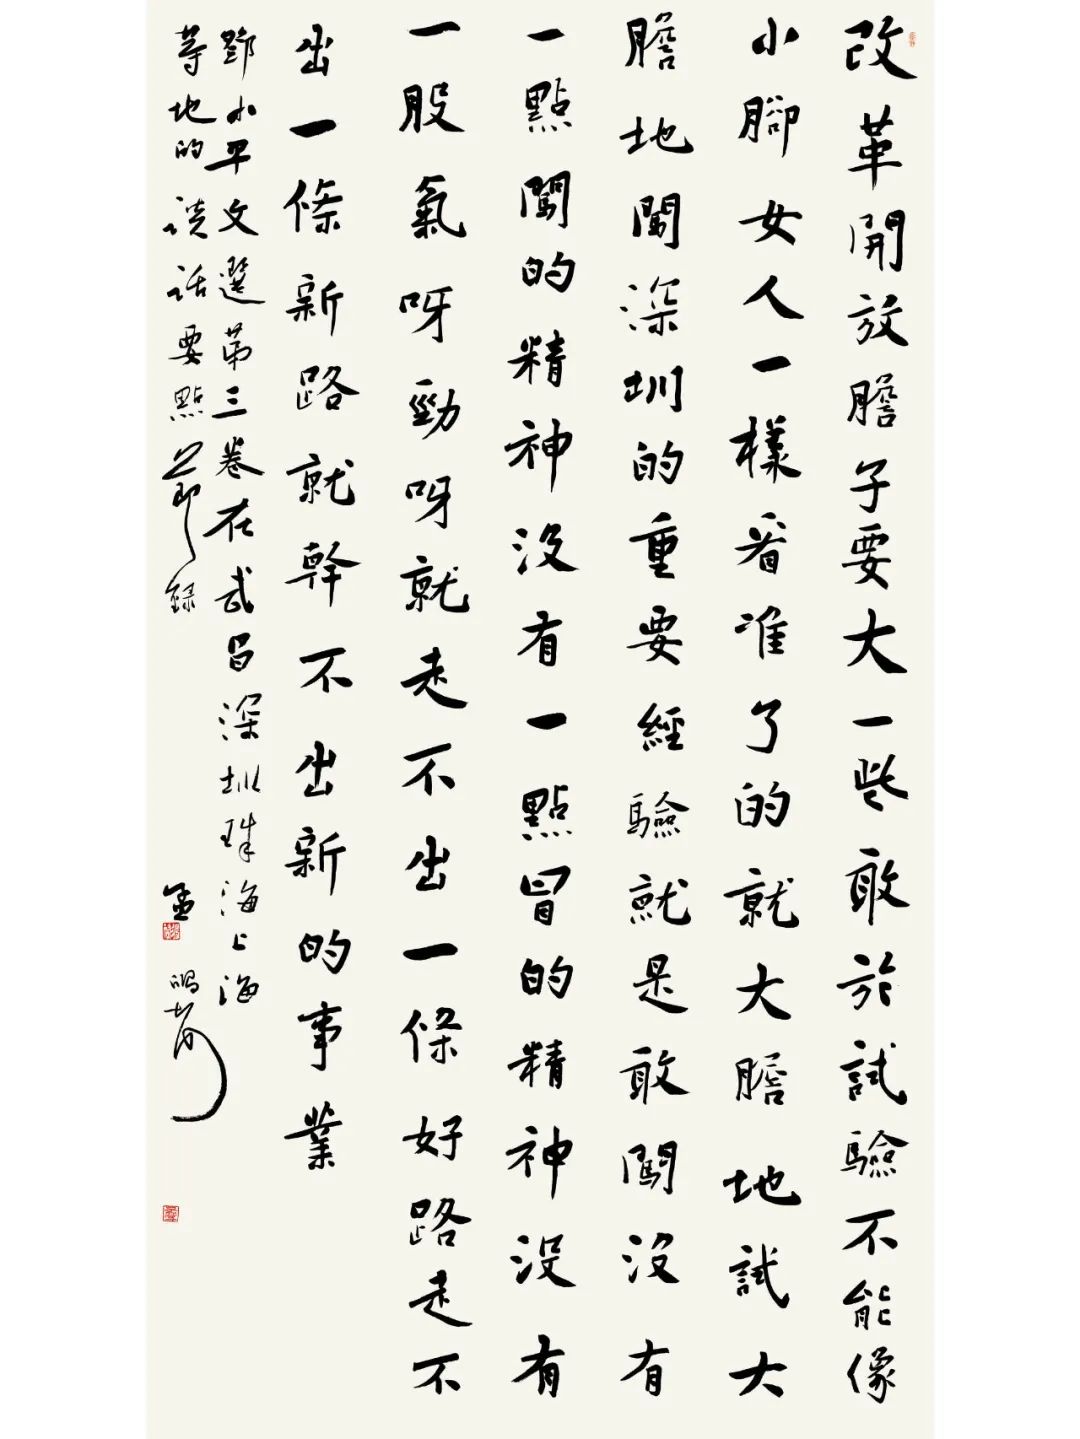 改革開放膽子要大一些敢於試驗不能像
小腳女人一樣看准了的就大膽地試大
膽地闖深圳的重要經驗就是敢闖没有
一點闖的精神没有一點冒的精神没有
一股氣呀勁呀就走不出一條好路走不
出一條新路就幹不出新的事業
鄧小平文選第三卷在武昌深圳珠海上海
等地的談話要點節録
孟